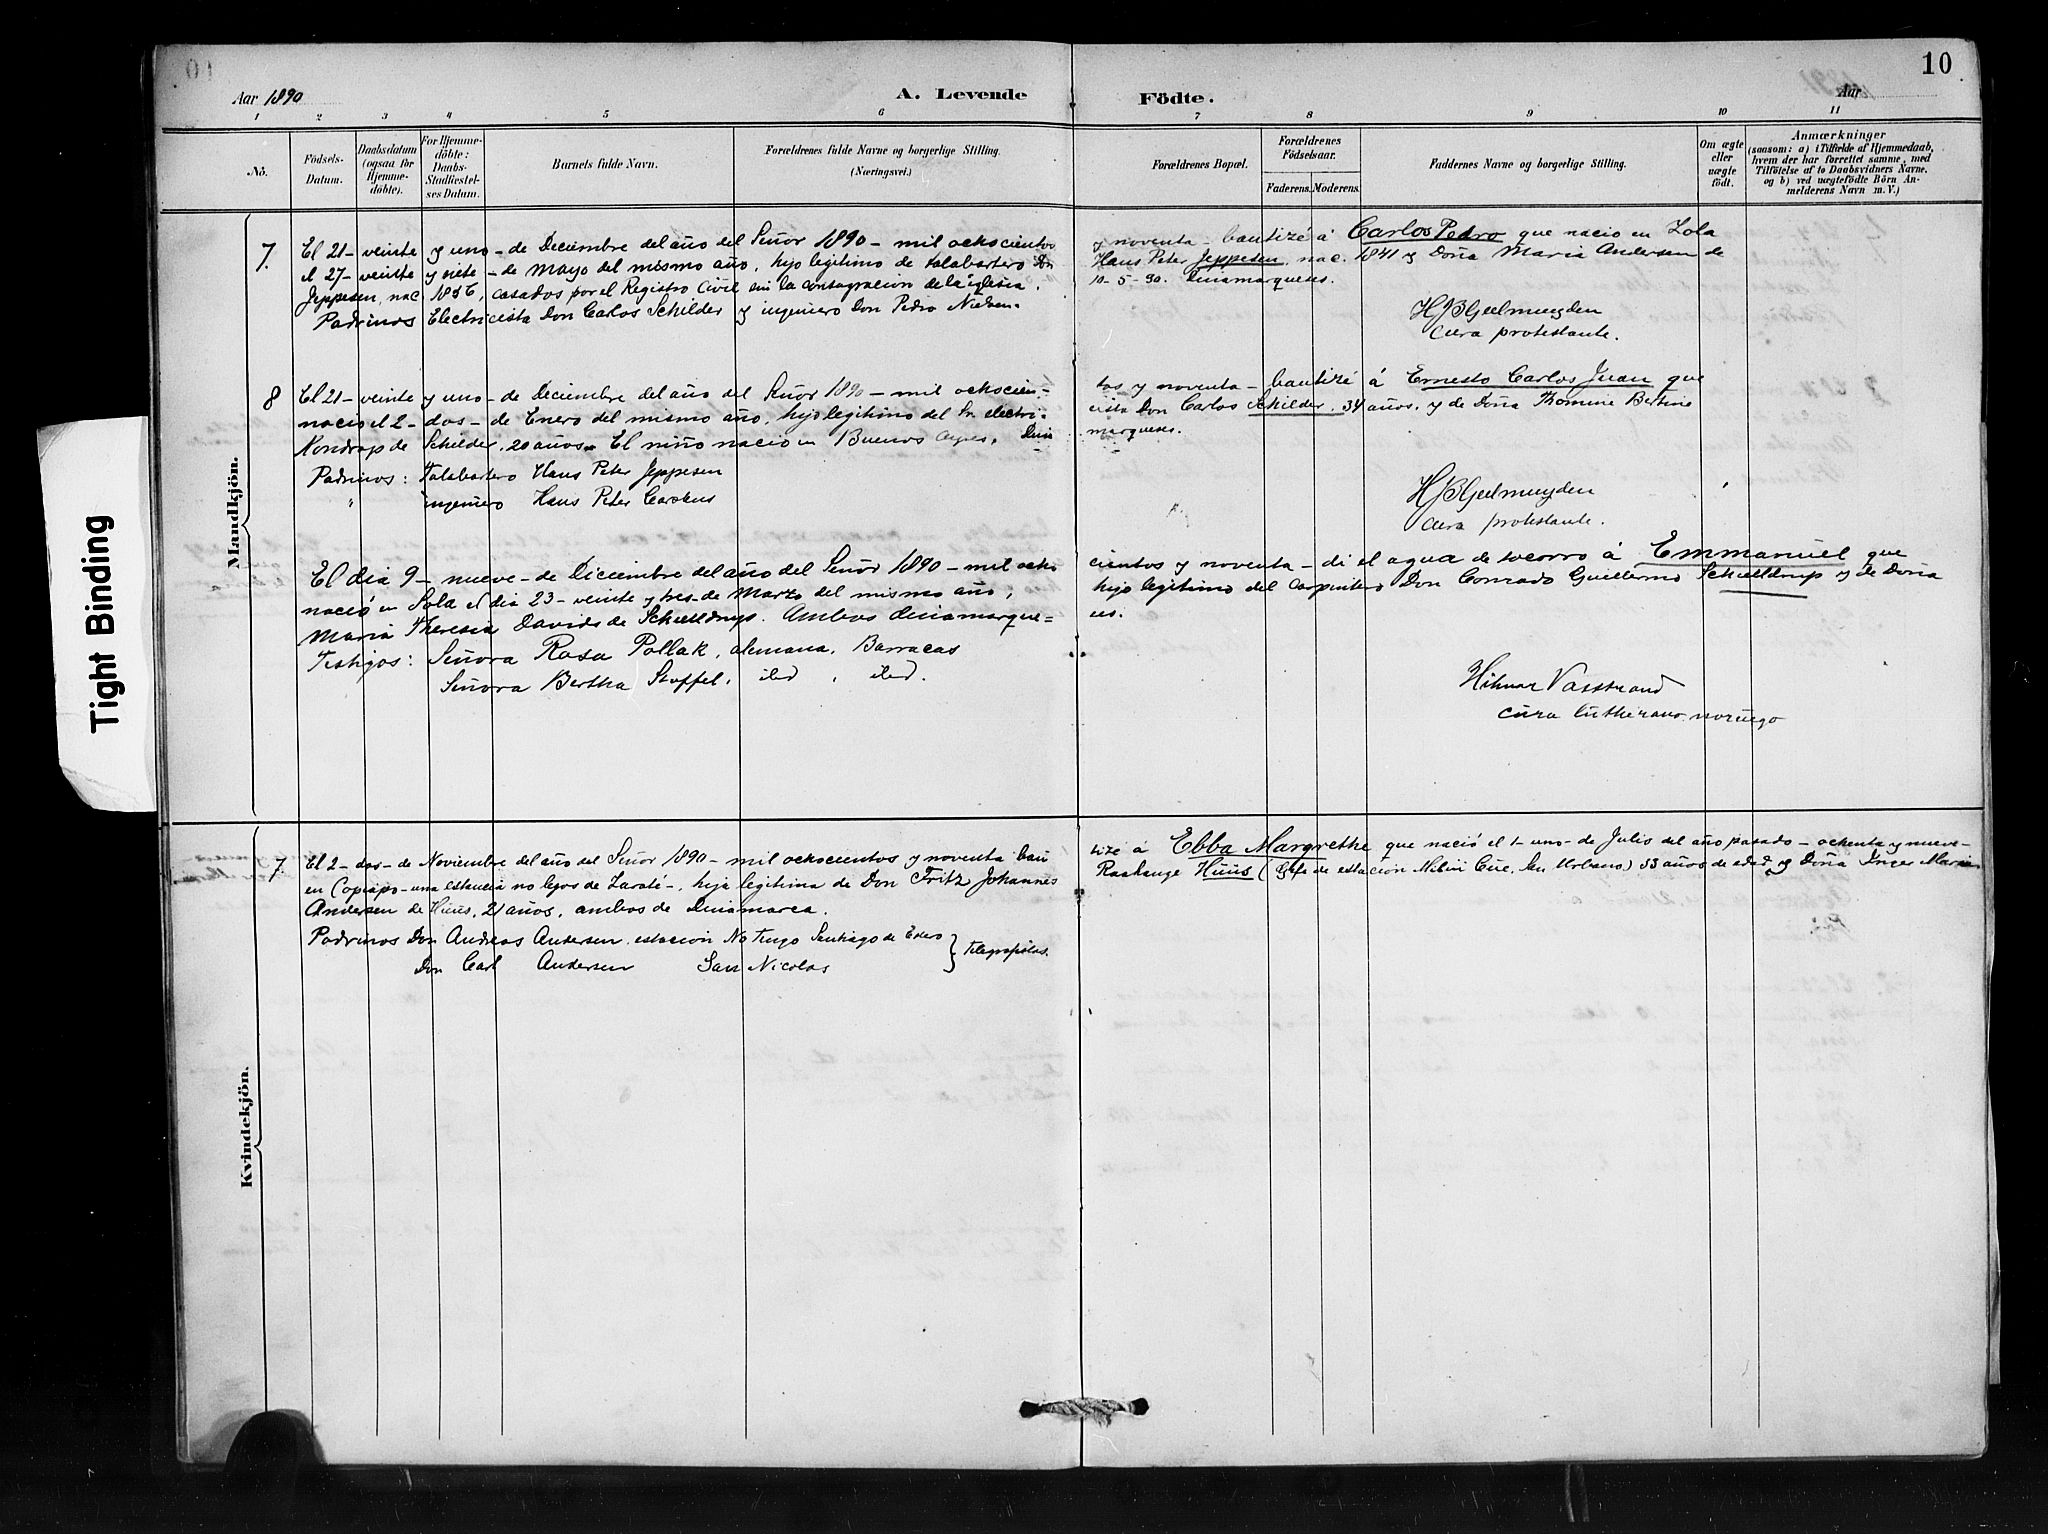 10
Aar 1890
A. Levende Födte.
Aar
1 2 3 4 5 6 7 8 9 10 11
No.
Födsels-Datum.
Daabsdatum (ogsaa for Hjemme-döbte).
For Hjemme-döbte: Daabs-Stadfæstel-ses Datum.
Barnets fulde Navn.
Forældrenes fulde Navne og borgerlige Stilling. (Næringsvei.)
Forældrenes Bopæl.
Forældrenes Födselsaar.
Faderens. Moderens.
Faddernes Navne og borgerlige Stilling.
Om ægte eller uægte födt.
Anmærkninger (saasom: a) i Tilfælde af Hjemmedaab, hvem der har forrettet samme, med Tilföielse af to Daabsvidners Navne, og b) ved uægtefödte Börn Anmelderens Navn m. V.)
Mandkjön.
7. El 21 - veinte y uno - de Deciembre del año del Señor 1890 - mil ochocientos y noventa - bautizé á Carlos Pedro que nacio en Lola
el 27 - veinte y siete - de Mayo del mismo año, hijo legitimo de talabartero Don Hans Peter Jeppesen, nac. 1841 y Doña Maria Andersen de
Jeppesen, nac 1856, casados por el Registro Civil sin la consagracion de la iglesia. 10-5-90. Dinamarqueses.
Padrinos Electricista Don Carlos Schilder y ingeniero Don Pedro Nielsen.
HJBGeelmuyden
Cura protestante.
8 El 21 - veinte y uno - de Deciembre del año del Señor 1890 - mil ochocien-tos y noventa - bautizé á Ernesto Carlos Juan que
nacio el 2 - dos - de Enero del mismo año, hijo legitimo del Sr. electri-cista Don Carlos Schilder, 34 años, y de Doña Thomine Bertine
Kondrup de Schilder, 20 años. El niño nacio en Buenos Ayres. Dina marqueses.
Padrinos: Talabartero Hans Peter Jeppesen
" ingeniero Hans Peter Carstens
HJBGeelmuyden
Cura protestante.
El dia 9 - nueve - de Diciembre del año del Señor 1890 - mil ocho cientos y noventa - di el agua de socorro á Emmanuel que
nació en Sola el dia 23 - veinte y tres - de Marzo del mismo año, hijo legitimo del carpintero Don Conrado Guillermo Schielldrup y de Doña
Maria Theresia Davids de Schielldrup. Ambos dinamarque= ses.
Testigos: Señora Rosa Pollak, alemana, Barracas
Señora Bertha Stoffel, ibd, ibd.
Hilmar Vasstrand
cura lutherano noruego
Kvindekjön.
7 El 2 - dos - de Noviembre del año del Señor 1890 - mil ochocientos y noventa bau tizé á Ebba Margrethe que nació el 1 - uno - de Julio del año pasado - ochenta y nueve -
en Copiapo - una estancia no lejos de Zarate -, hija legitima de Don Fritz Johannes Huus (Gefe de estacion 33 años de edad y Doña Inger Marie
Andersen de Huus, 21 años, ambos de Dinamarca.
Padrinos Don Andreas Andersen, estacion Santiago de Estero
Don Carl Andersen San Nicolas } Telegrafistas.
Tight Binding